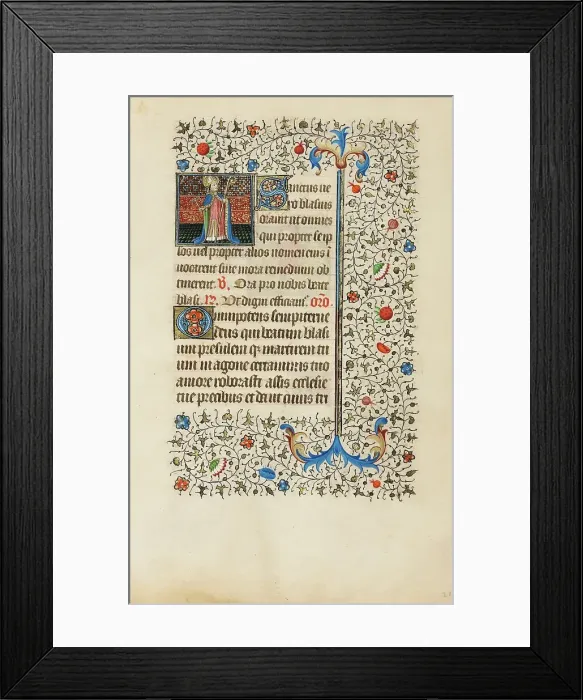 Sanctus ue
ro blasius
orauit ut omnes
qui propter se ip
sos uel propter alios nomen eius ī
uocarent sine mora remedium ob
tinerent. V. Ora pro nobis beate
blasi. R. Ut digni efficiam̄. orō.
Omnipotens sempiterne
deus qui beatum blasi
um presulem et martirem tu
um in agone certaminis tuo
amore roborasti assis ecclesie
tue precibus et da ut cuius tri